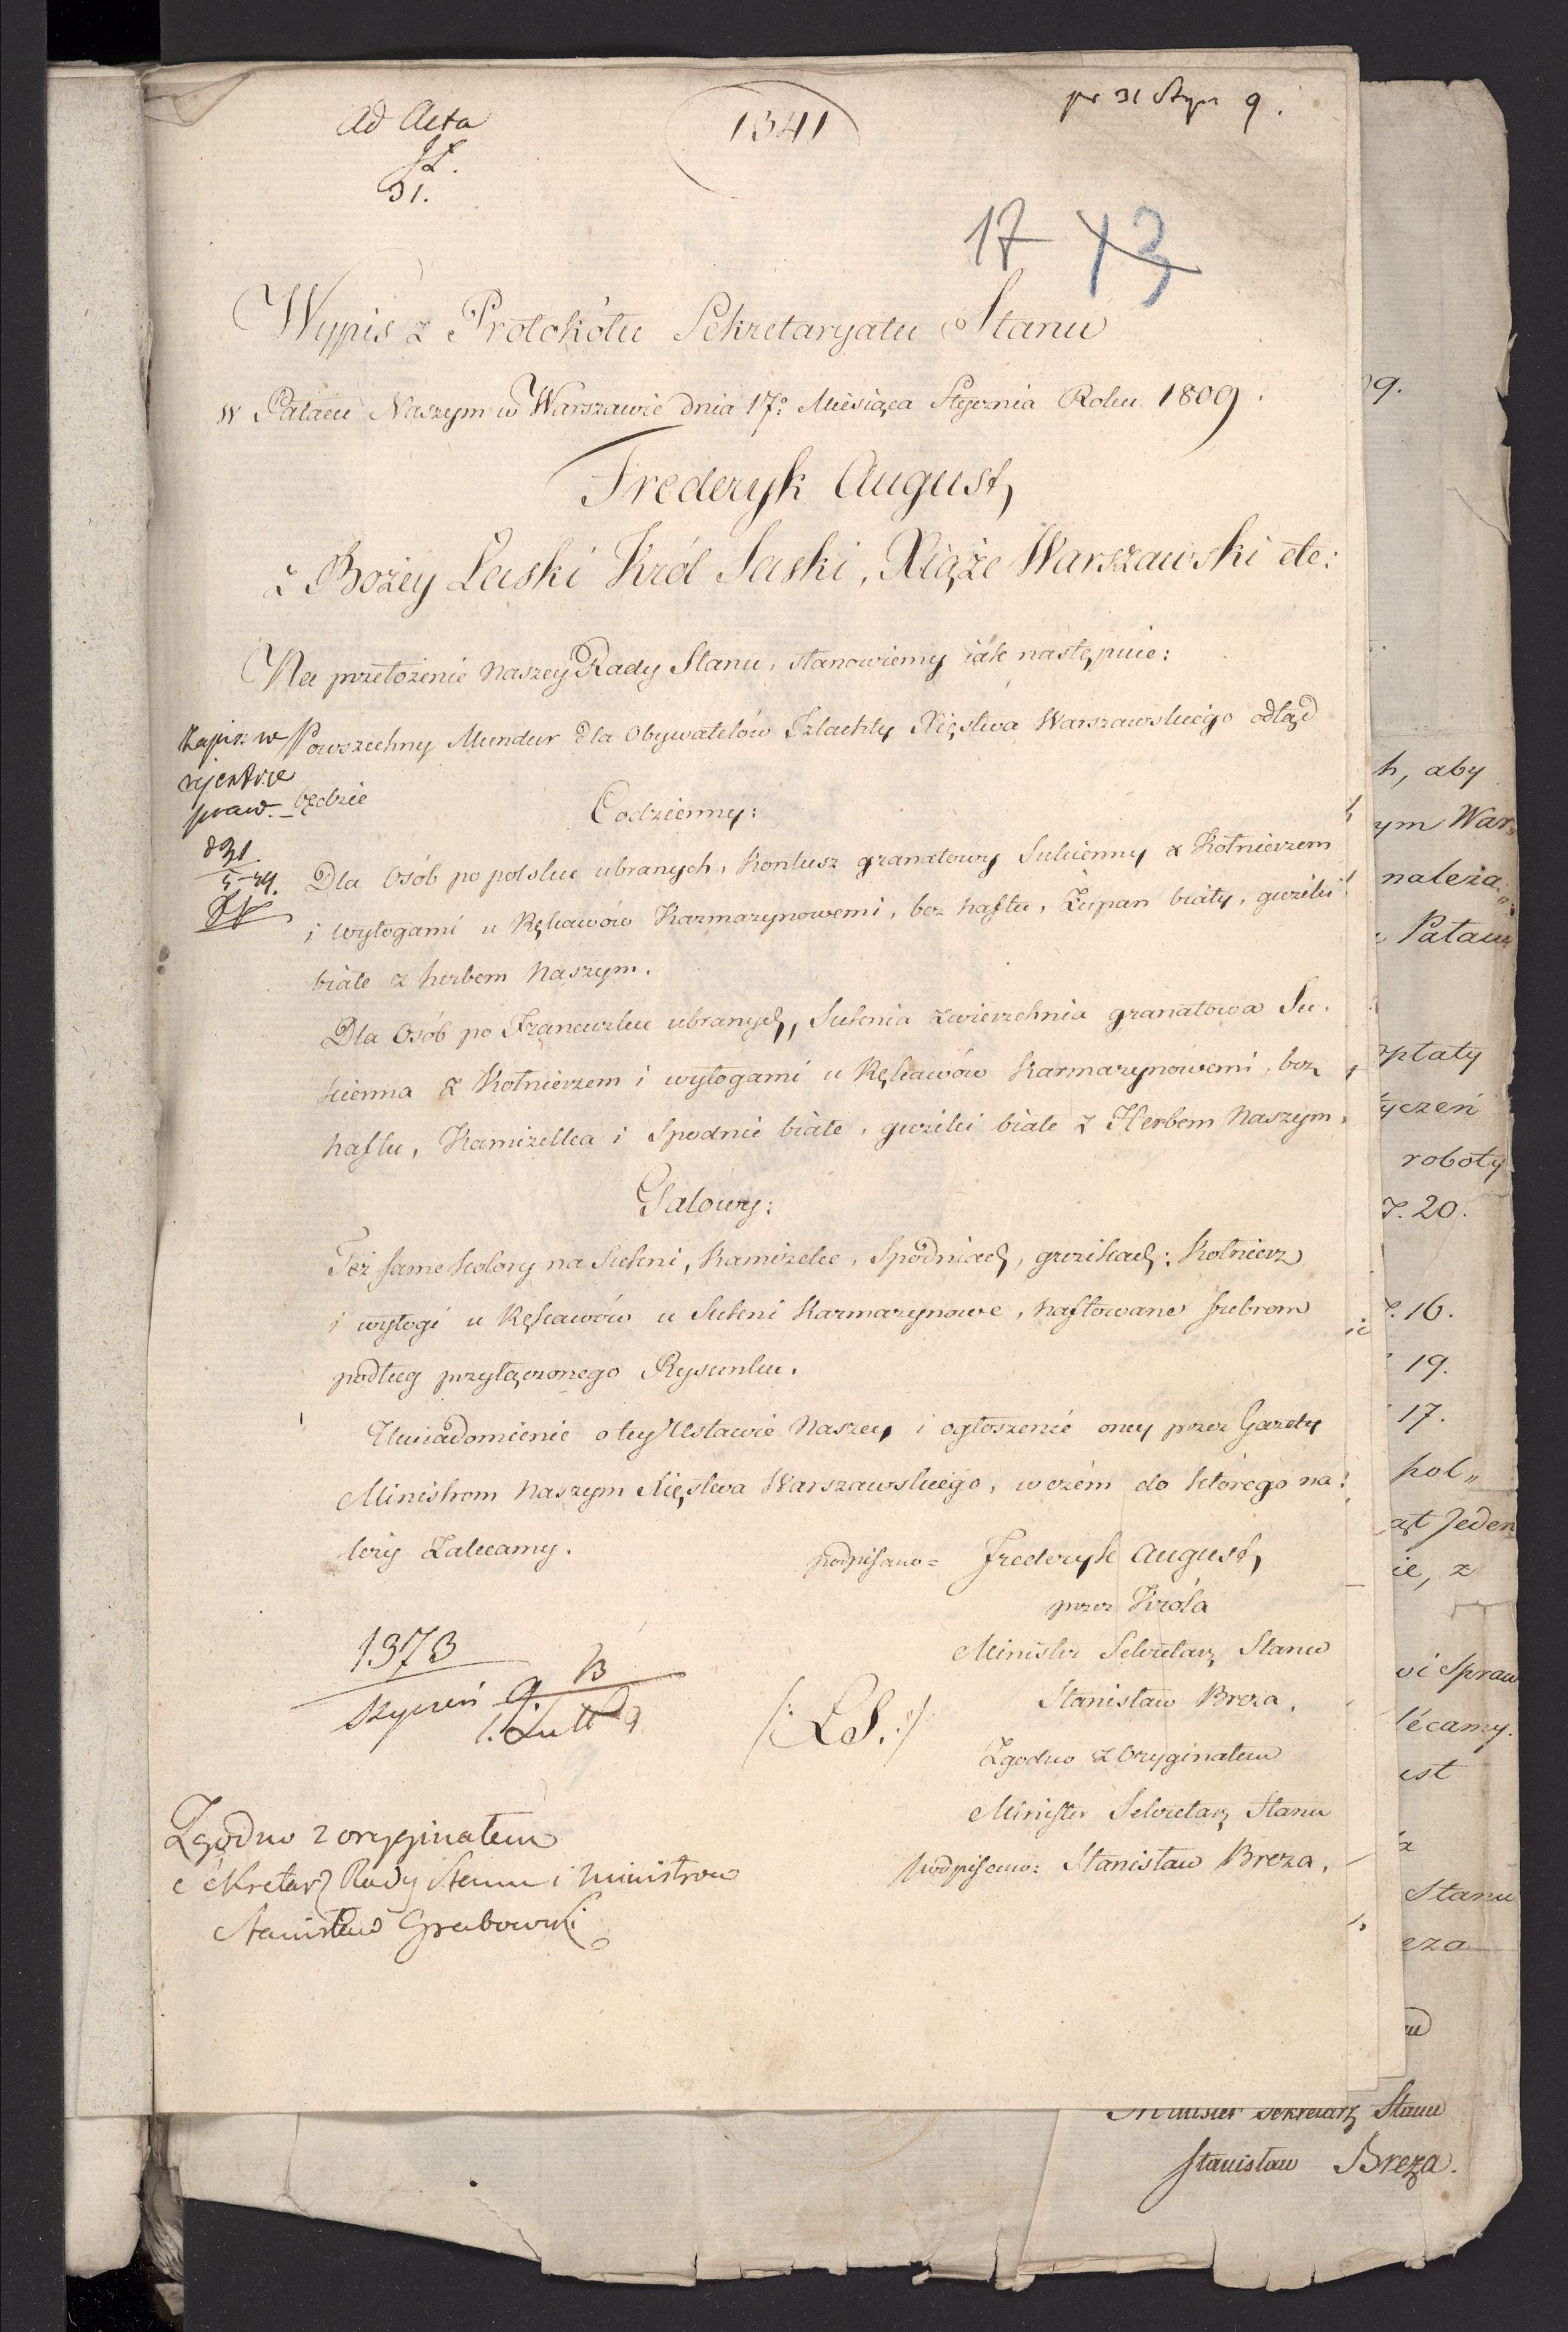 Ad Acta
31.
1341
pr 31 Stycz 9.
17 43
Wypis z Protokółu Sekretaryatu Stanu
w Pałacu Naszym w Warszawie dnia 17º Miesiąca Stycznia Roku 1809.
Frederyk August,
z Bożey Łaski Król Saski, Xiąże Warszawski etc:
Na przełożenie Naszey Rady Stanu, stanowiemy iak następuie:
Zapis: w
rejestrze
praw.
Powszechny Mundur dla Obywatelów Szlachty Xięstwa Warszawskiego odtąd
będzie
Codzienny:
Dla Osób po polsku ubranych, Kontusz granatowy Sukienny z Kołnierzem
i wyłogami u Rękawów Karmazynowemi, bez haftu, Żupan biały, guziki
białe z herbem Naszym.
Dla Osób po Francuzku ubranych, Suknia zwierzchnia granatowa Su-
kienna z Kołnierzem i wyłogami u Rękawów Karmazynowemi, bez
haftu, Kamizelka i Spodnie białe, guziki białe z Herbem Naszym.
Galowy:
Też same kolory na Sukni, Kamizelce, Spodniach, guzikach: Kołnierz
i wyłogi u Rękawów u Sukni Karmazynowe, haftowane srebrem
podług przyłączonego Rysunku.
Uwiadomienie o tey Ustawie Naszey i ogłoszenie oney przez Gazety
Ministrom Naszym Xięstwa Warszawskiego, w czém do którego na-
leży Zalecamy.
podpisano = Frederyk August,
przez Króla
Minister Sekretarz Stanu
Stanisław Breza.
/: LS. :/
Zgodno z Oryginałem
Minister Sekretarz Stanu
podpisano: Stanisław Breza.
1373
Styczeń 9
Zgodno z oryginałem
Sekretarz Rady Stanu i Ministrow
Stanisław Grabowski
09.
h, aby
ym War
należą
Pałacu
opłaty
yczeń
roboty
7. 20.
7. 16.
19.
17.
pol„
ąt Jeden
ie, z
vi Spraw
lécamy.
ust
Stanu
eza
Minister Sekretarz Stanu
Stanisław Breza.